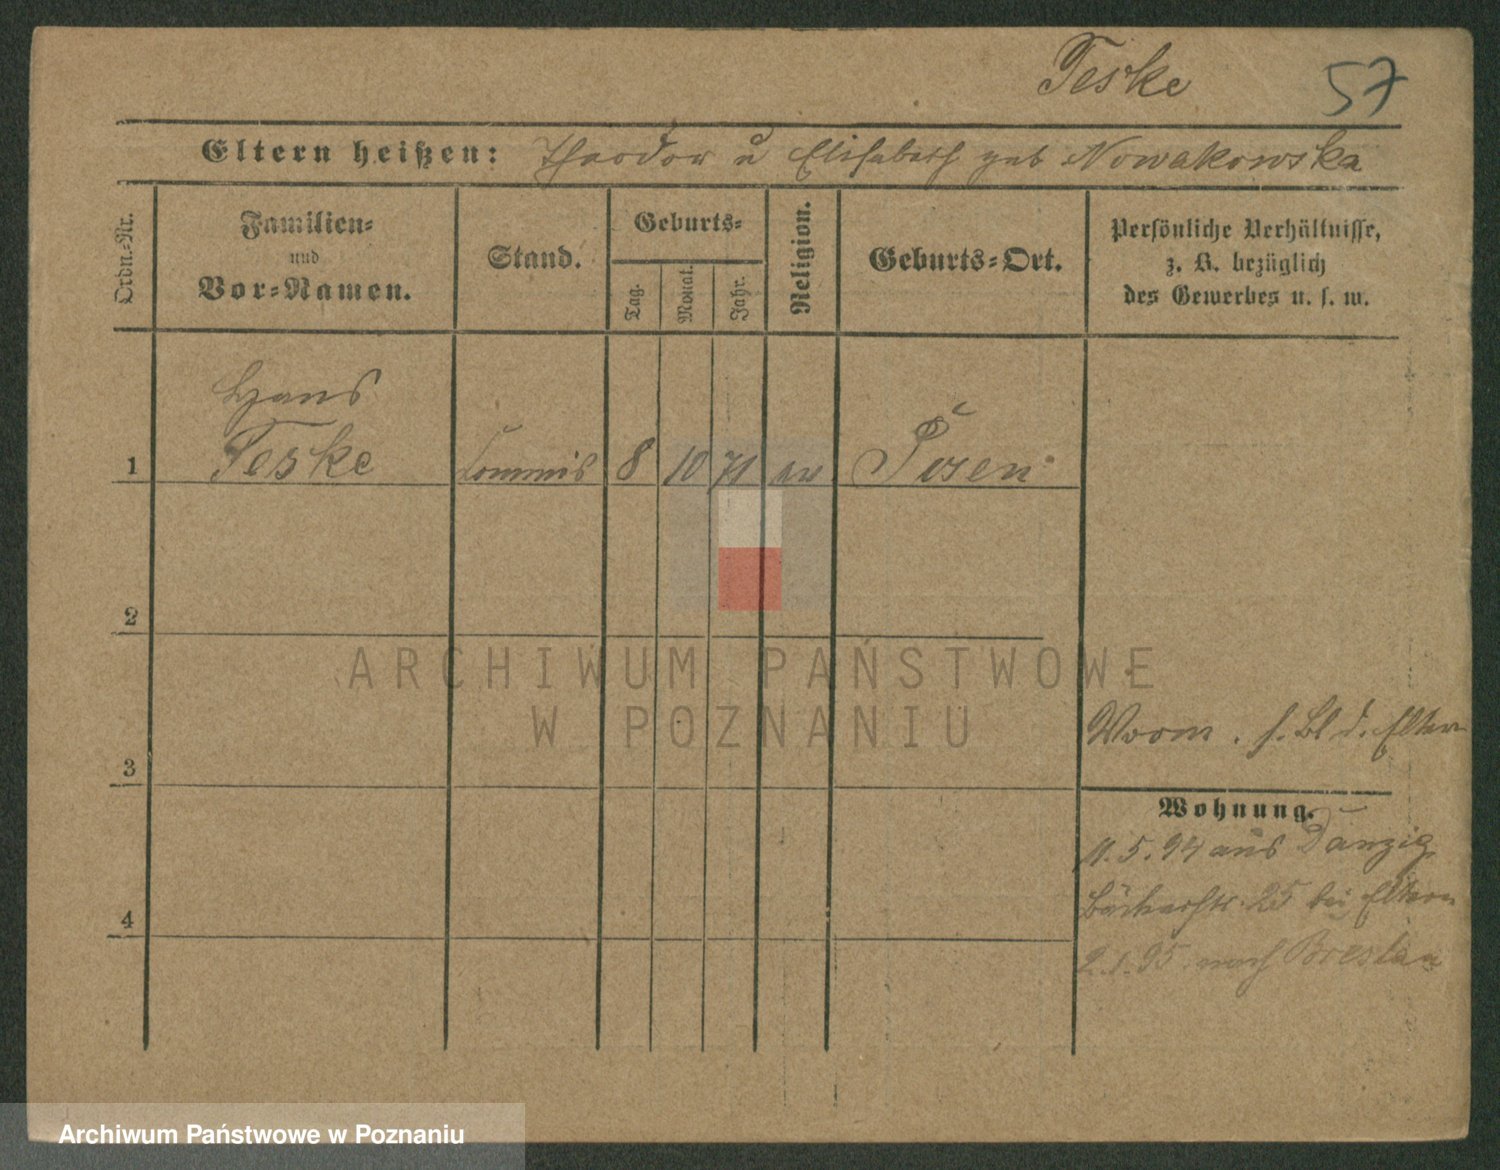 Teske
57
Eltern heißen: Theodor u Elisabeth geb Nowakowska
Ordn.-Nr.
Familien-
und
Vor-Namen.
Stand.
Geburts-
Tag.
Monat.
Jahr.
Religion.
Geburts-Ort.
Persönliche Verhältnisse,
z. B. bezüglich
des Gewerbes u. s. w.
Hans
1 Teske Commis 8 10 71 ev Posen
2
ARCHIWUM PAŃSTWOWE
W POZNANIU
3
s. Bl d. Eltern
Wohnung.
11.5.94 aus Danzig
Bäckerstr. 25 bei Eltern
4
2.1.95 nach Breslau
Archiwum Państwowe w Poznaniu